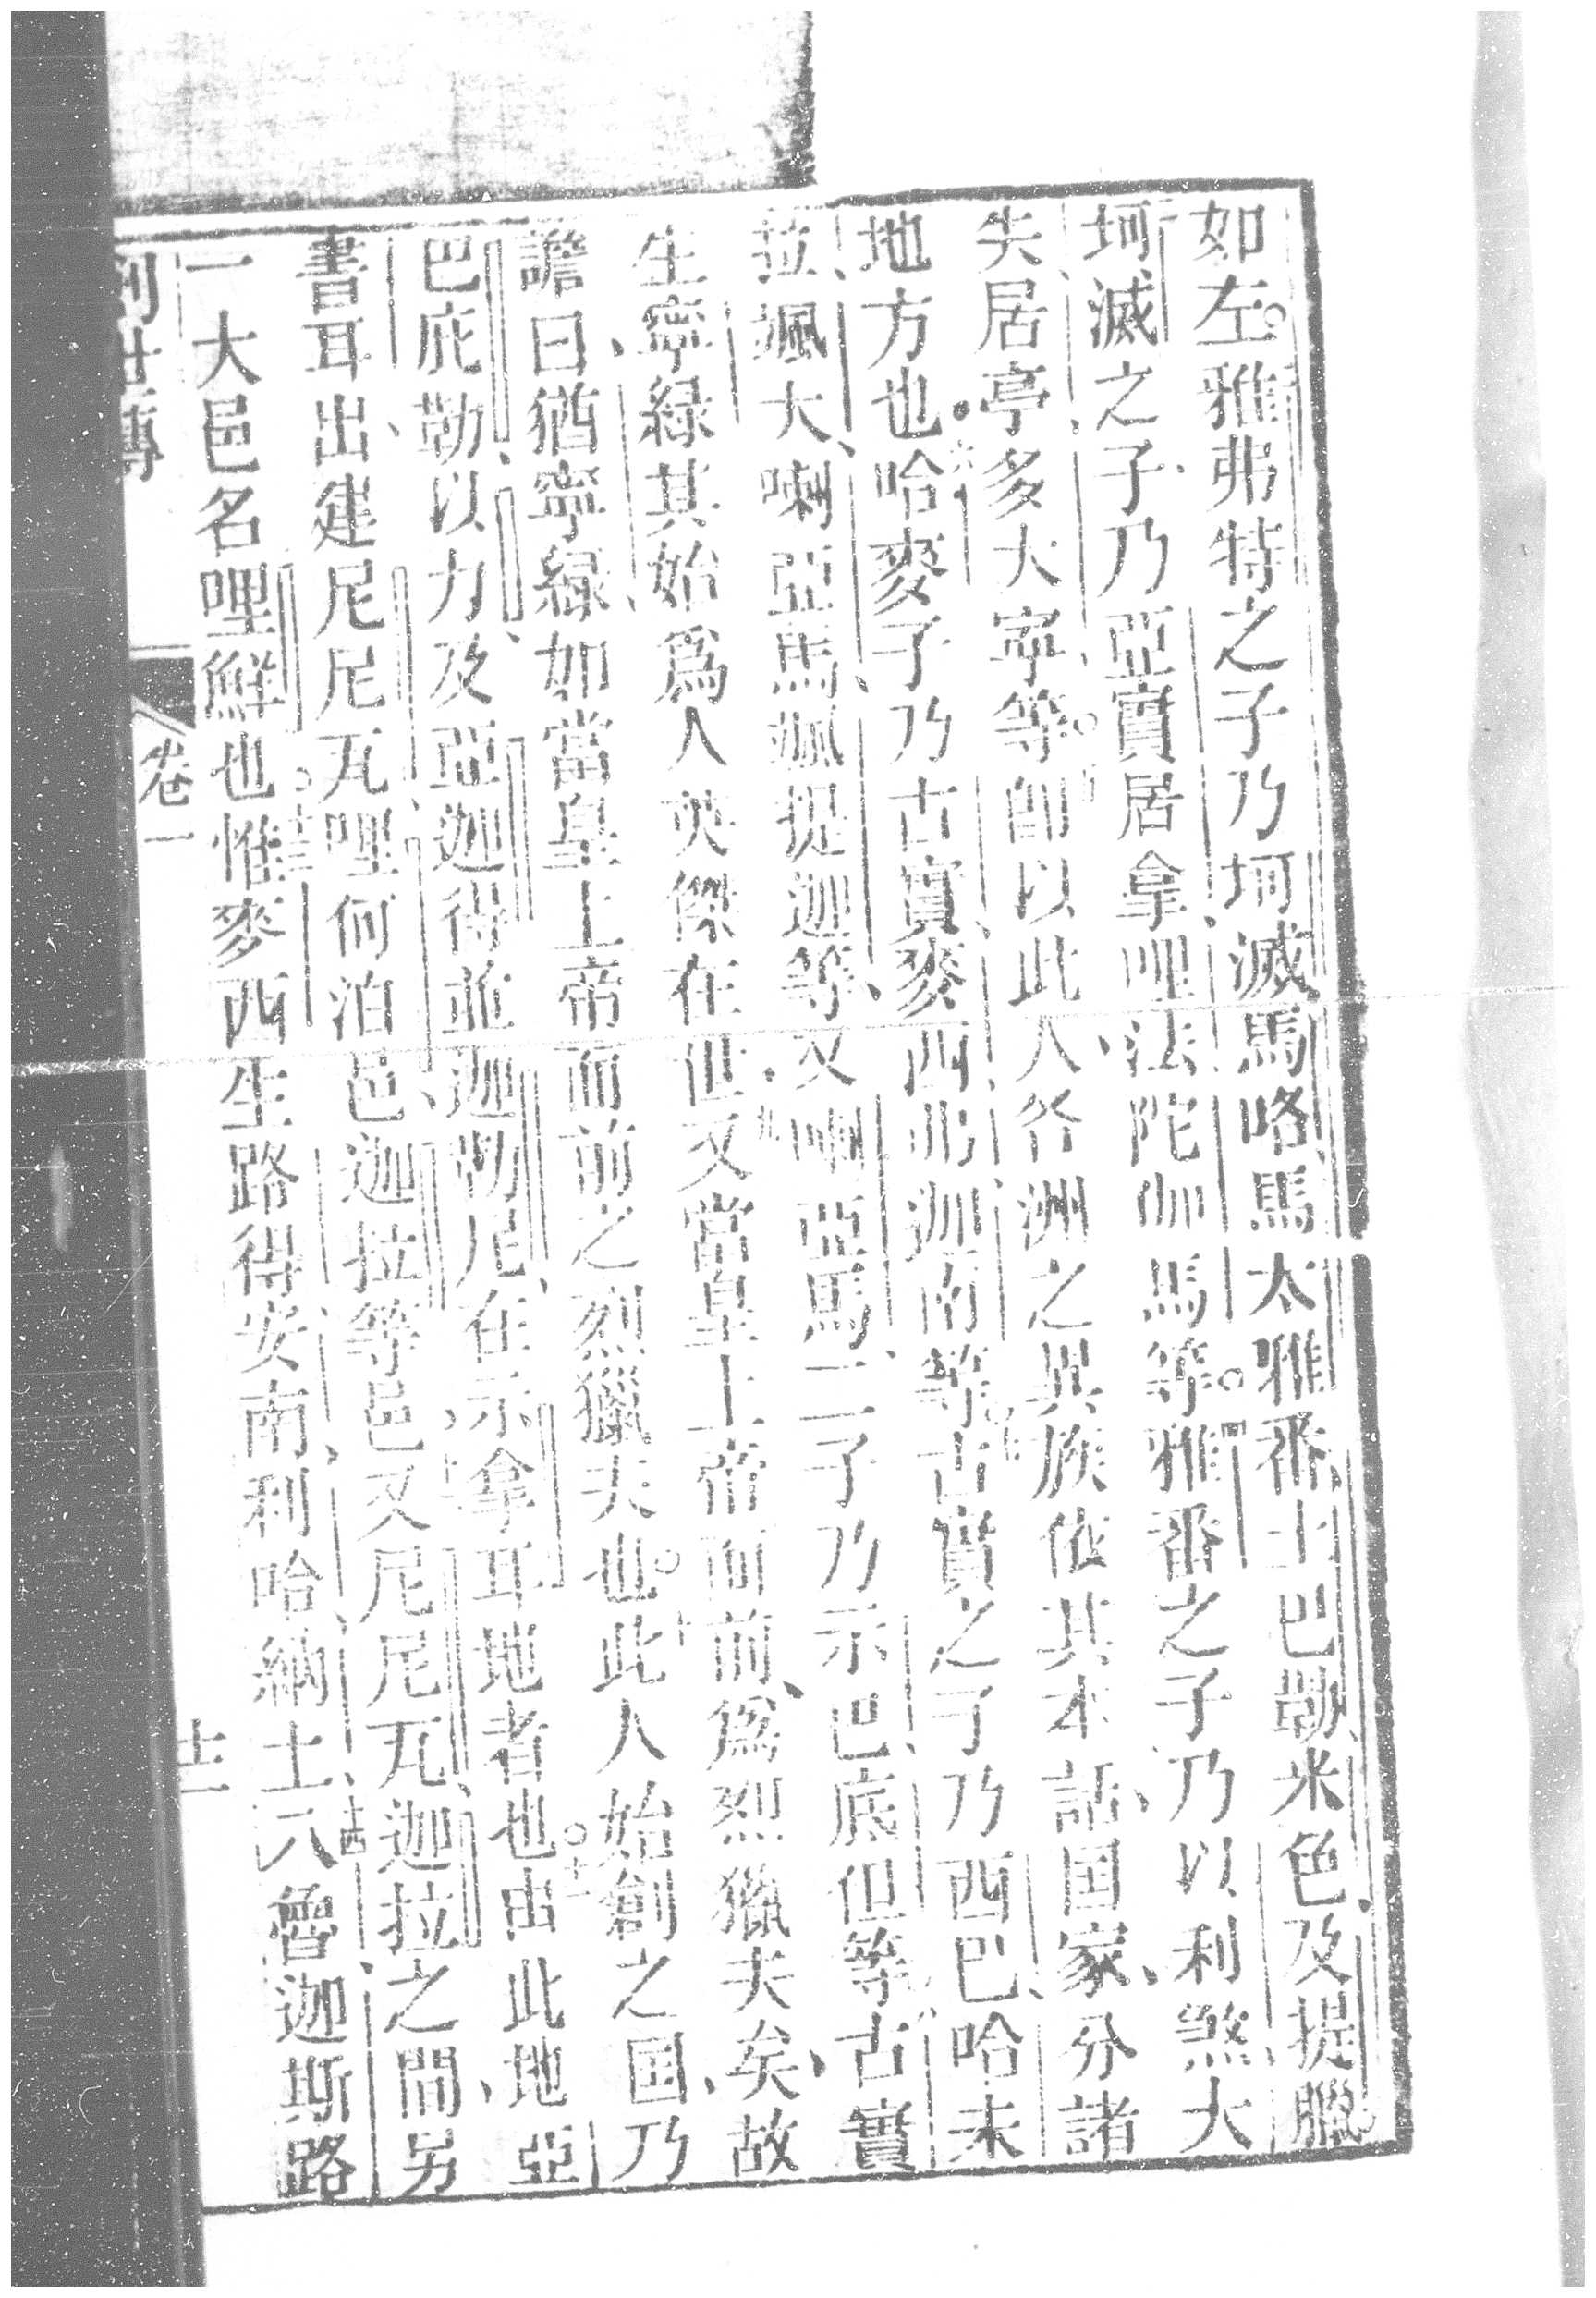 如左。雅弗特之子乃坷滅、馬咯、馬太、雅番、土巴勒、米色、及提臘。
坷滅之子乃亞實居拿、哩法、陀伽馬等。四雅番之子乃以利煞、大
失居亭、多大寧等。五卽以此人、各洲之異族依其本話、国家、分諸
地方也。六哈麥子乃古實、麥西、弗、迦南等。七古實之子乃西巴、哈未
拉、颯大、喇亞馬、颯提迦等、又喇亞馬二子乃示巴、底但等、古實
生寧綠、其始爲人英傑在世。九又當皇上帝面前、爲烈獵夫矣、故
譫曰、猶寧綠如當皇上帝面前之烈獵夫也。十此人始創之国、乃
巴庇勒、以力、及亞迦得、並迦勒尼、在示拿耳地者也。十一由此地、亞
書耳出、建尼尼瓦、哩何泊邑、迦拉等邑、十二又尼尼瓦、迦拉之間、另
一大邑名哩鮮也。十三惟麥西生路得、安南、利哈、納土、十四八魯、迦斯路
卷一
十二